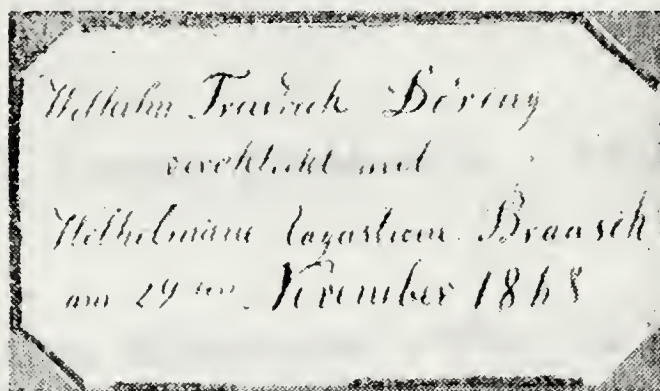 Wilhelm Friedrich Döring
verehlicht mit
Wilhelmine Braasch
am 29 ten November 1868